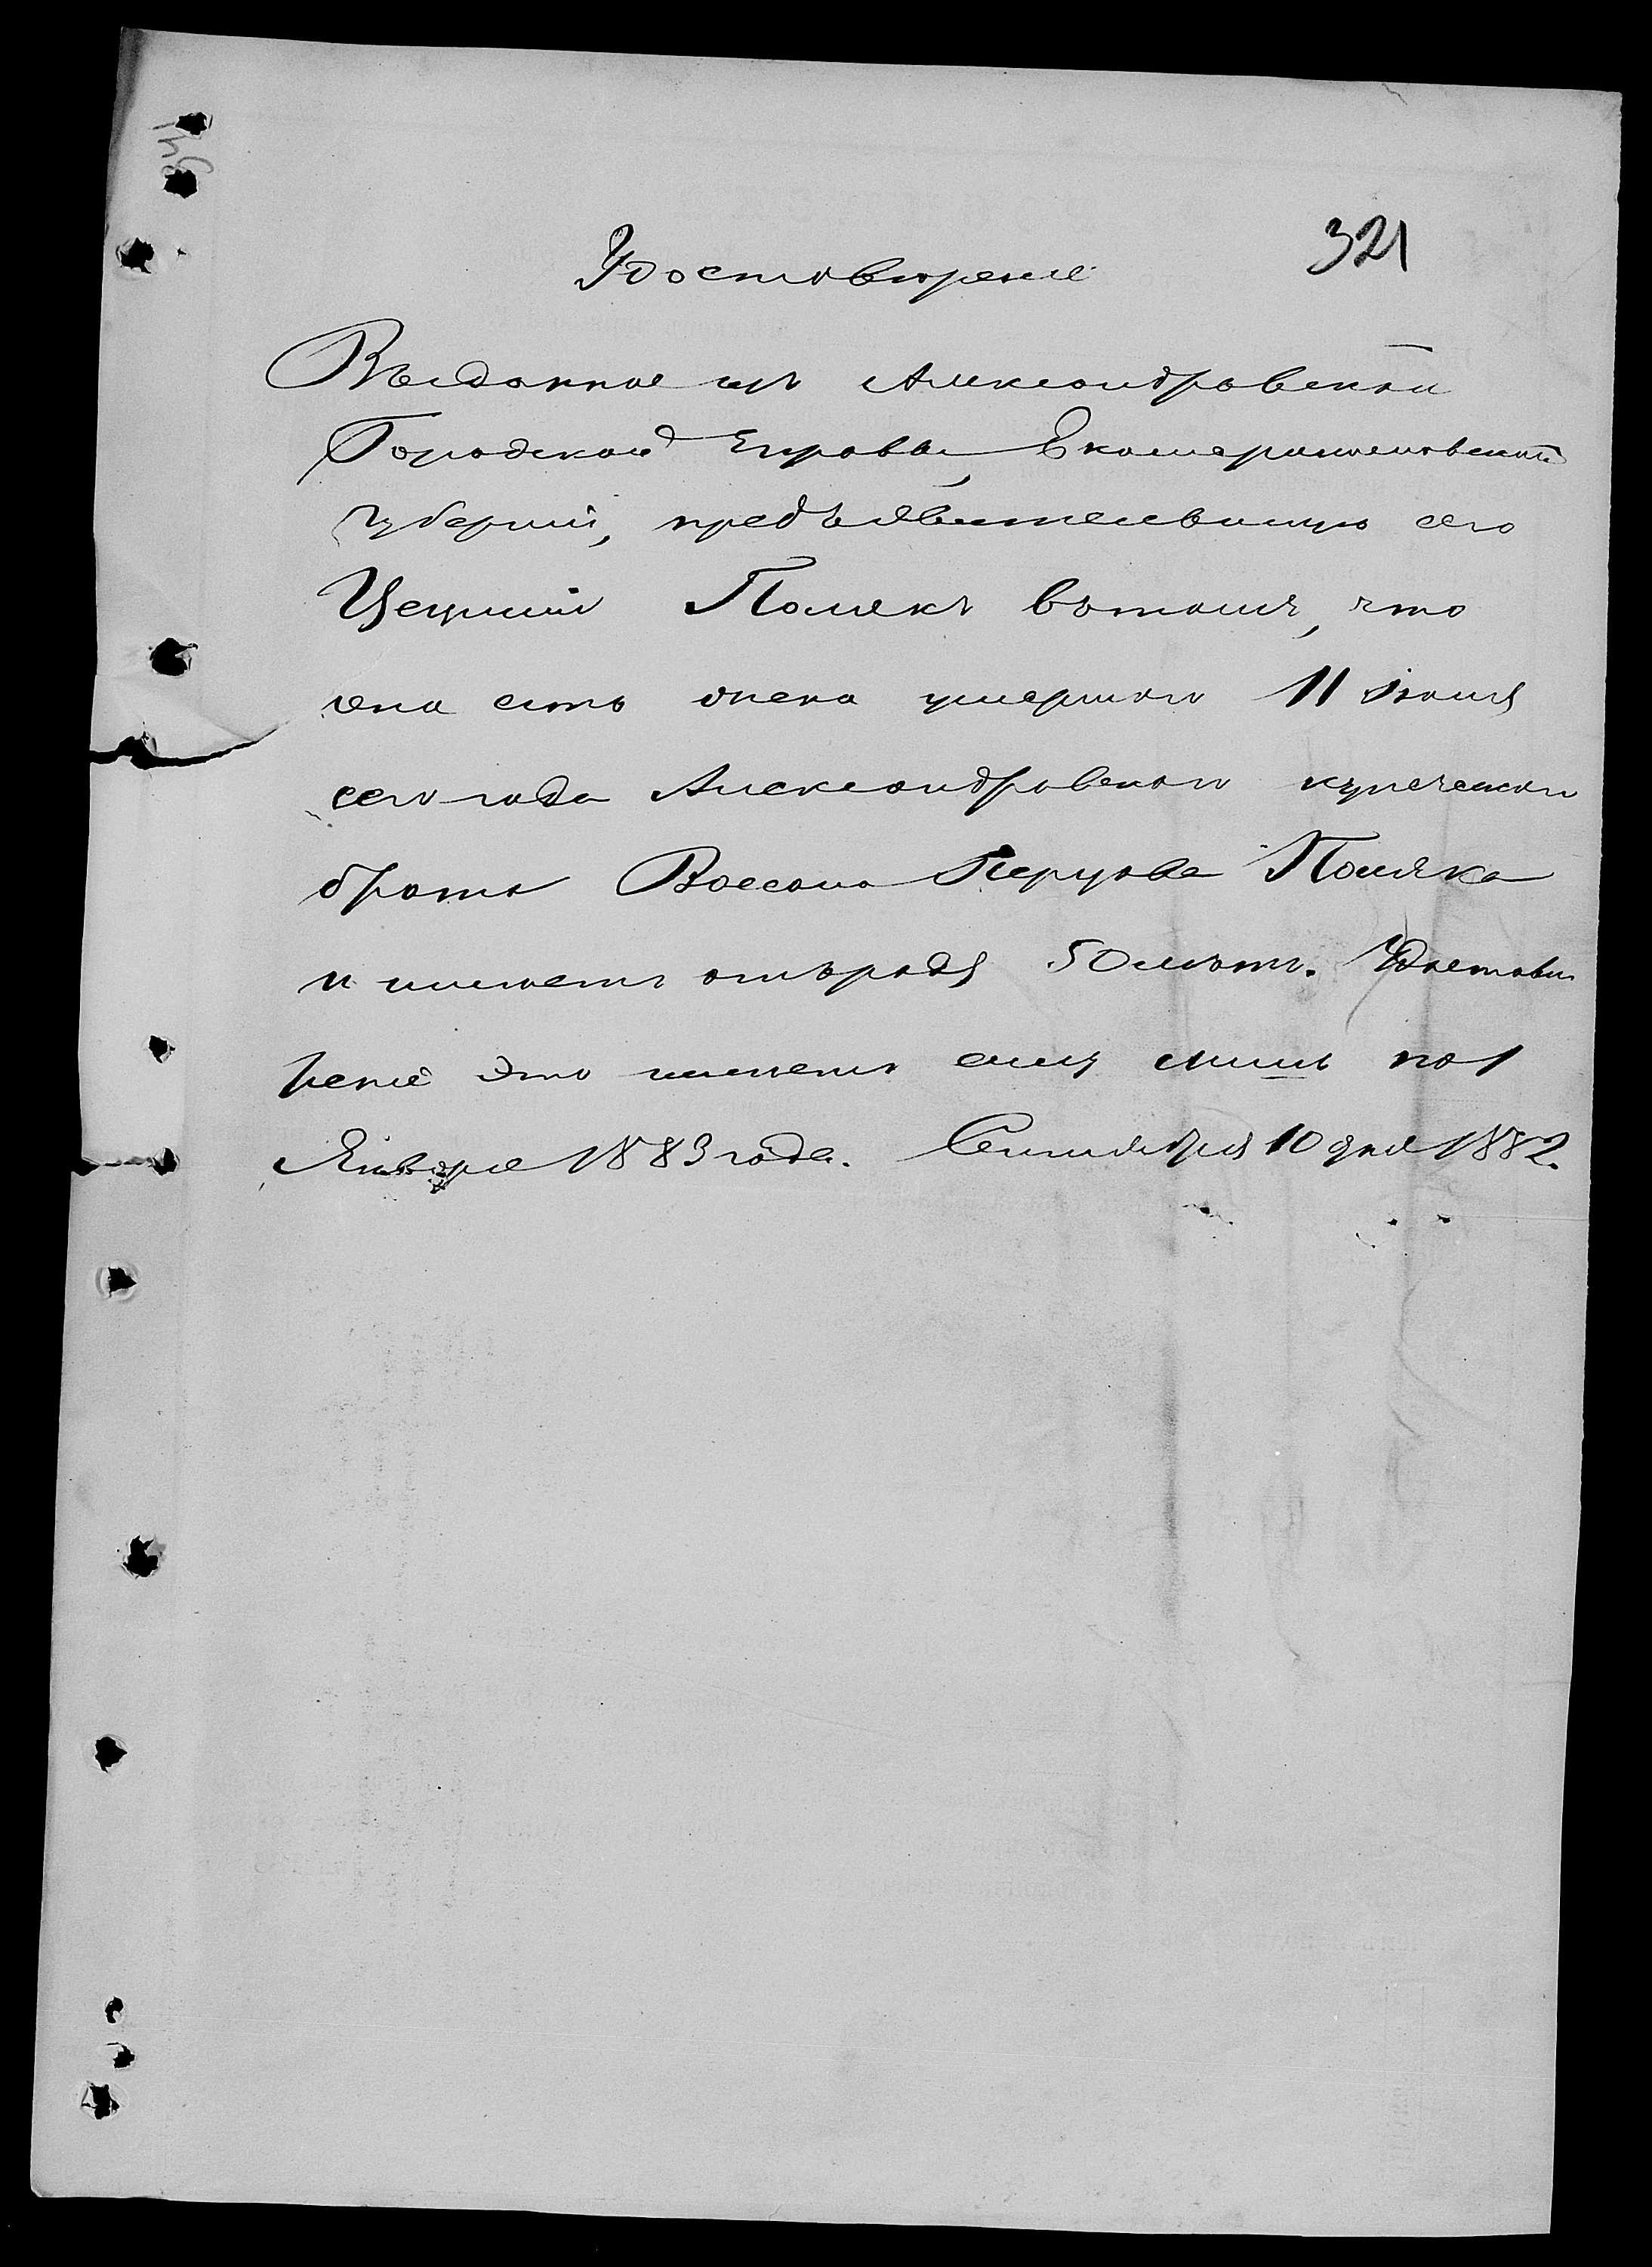 321
Удостовѣреніе
Выданное изъ Александровской
Городской Управы, Екатеринославской
губерніи, предъявительницѣ сего
Полякъ въ томъ, что
она есть жена умершаго 11 Іюня
сего года Александровскаго купеческаго
брата Поляка
и имѣетъ отъ роду 50 лѣтъ. Удостовѣ
реніе это имѣетъ силу лишь по 1
Января 1883 года. Сентября 10 дня 1882.